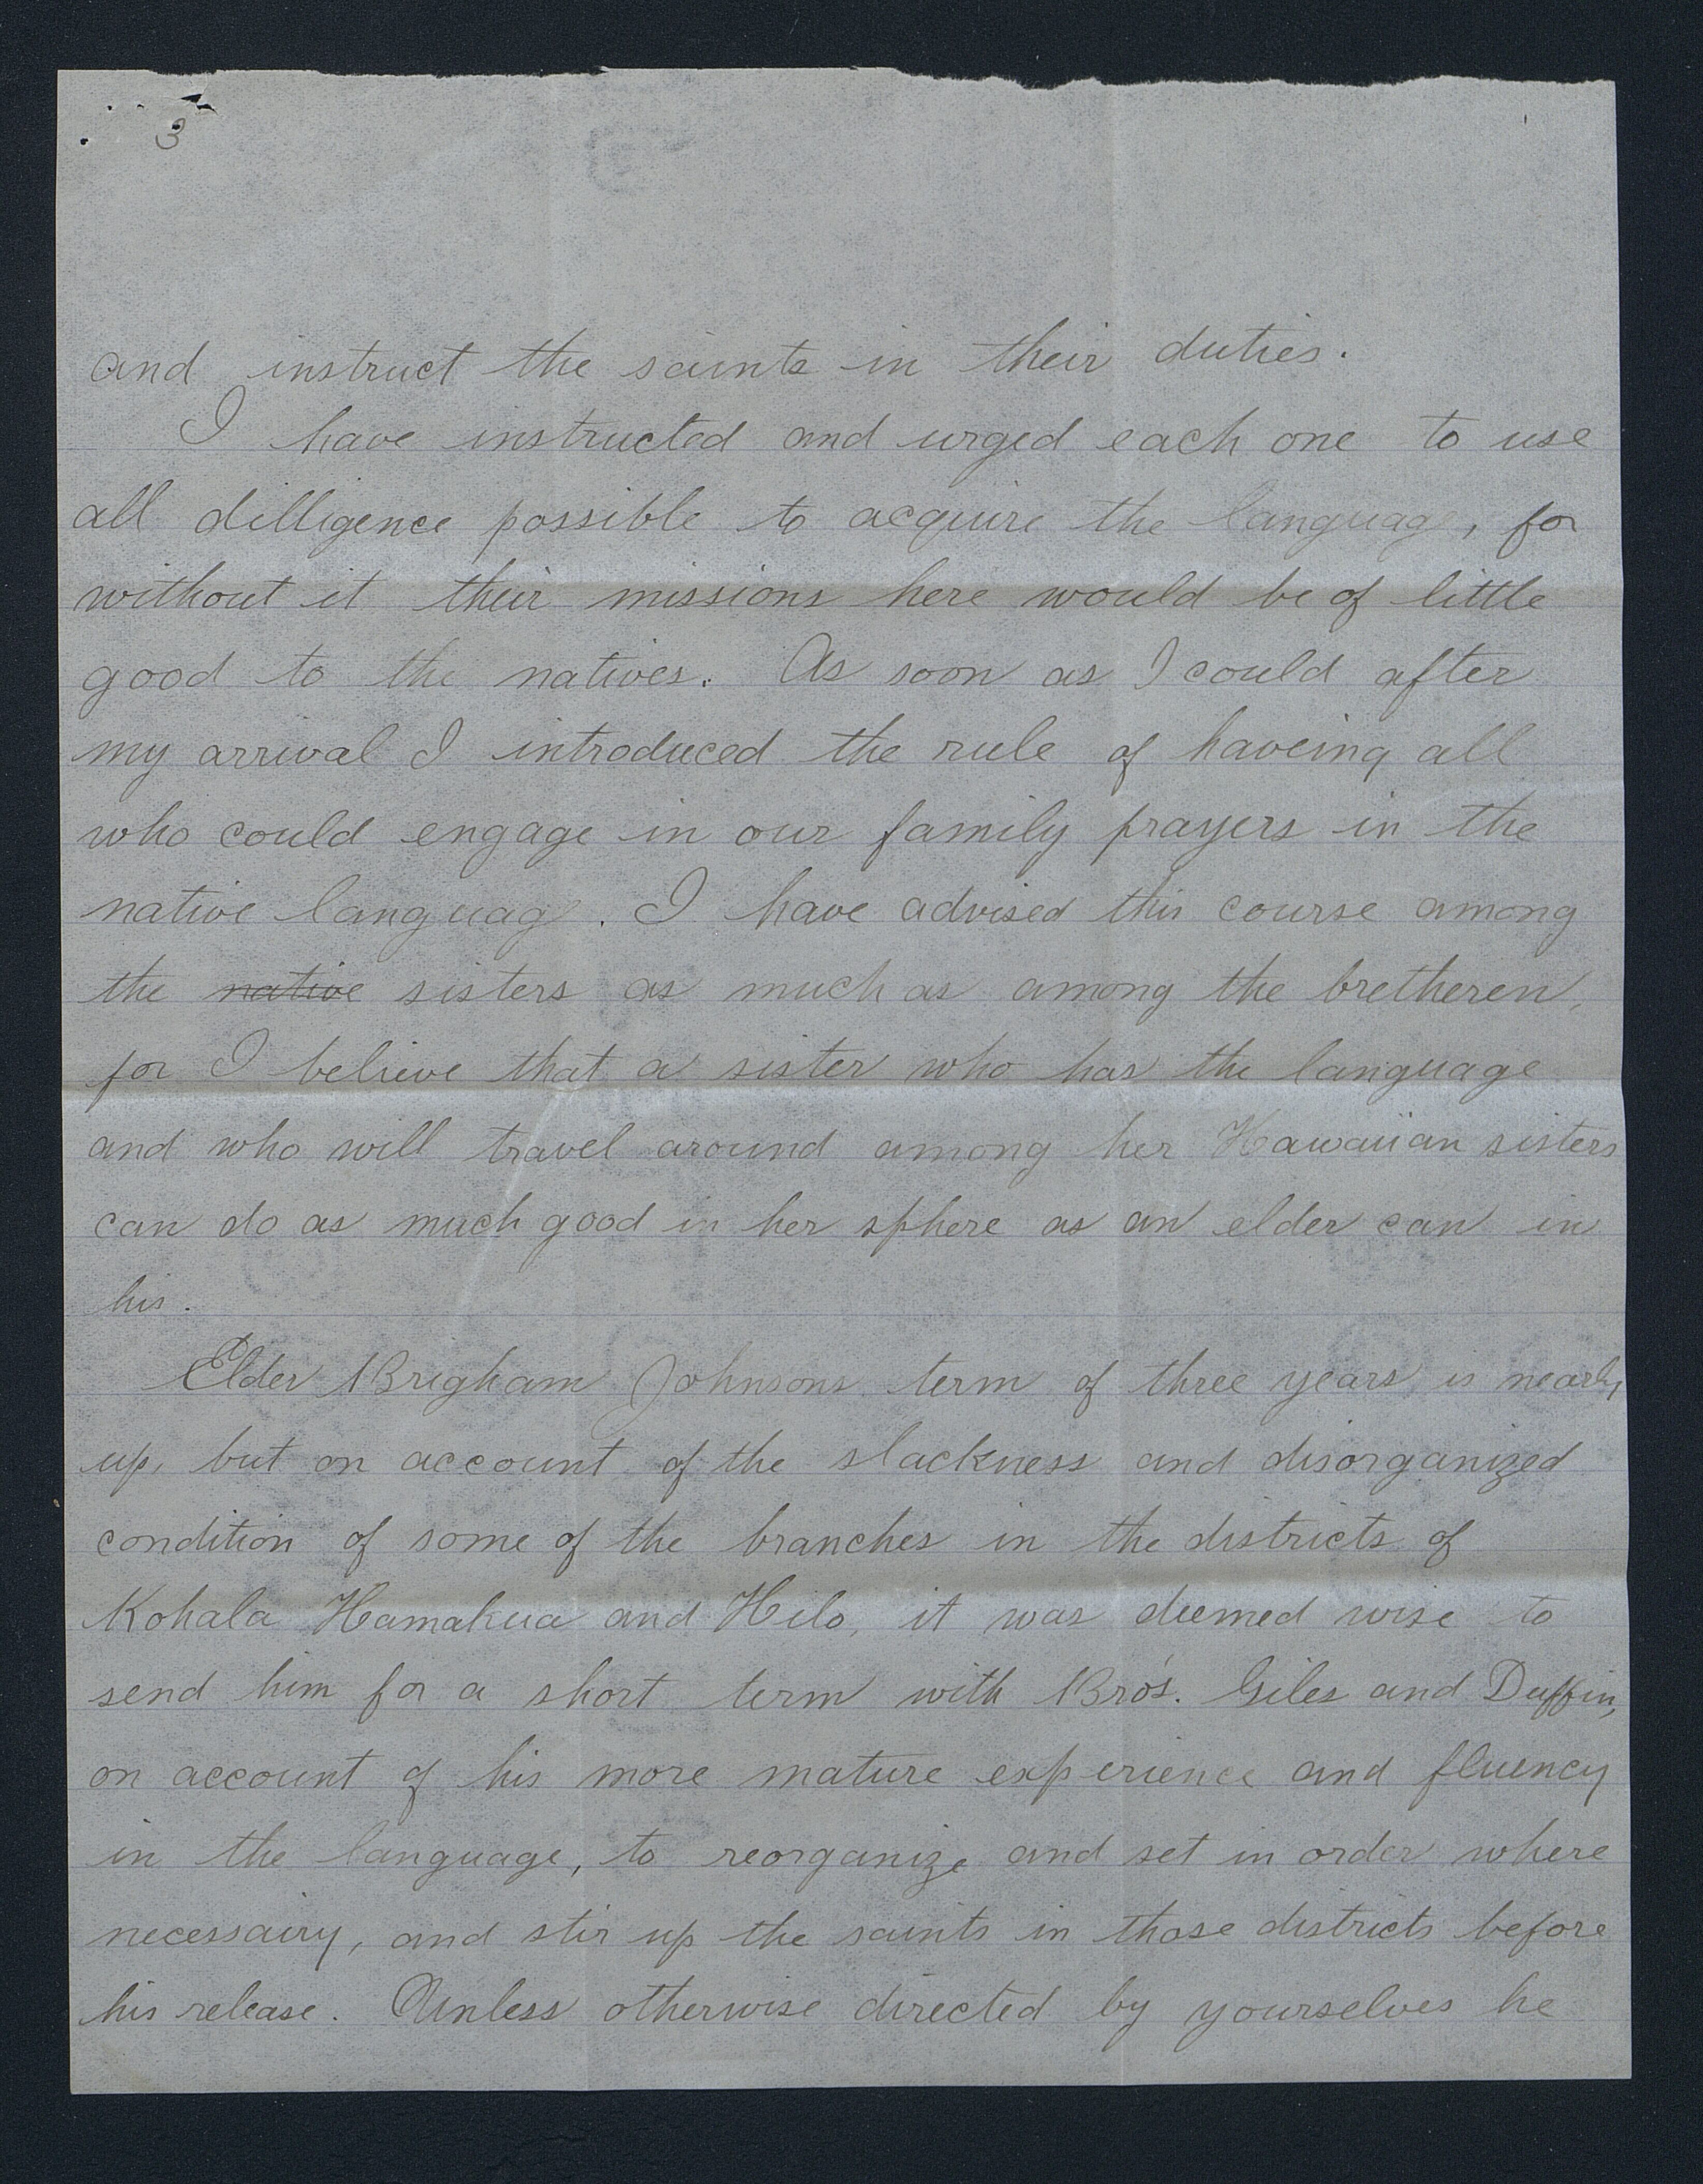 3
and instruct the saints in their duties.
I have instructed and urged each one to use
all dilligence possible to acquire the language, for
without it their missions here would be of little
good to the natives. As soon as I could after
my arrival I introduced the rule of haveing all
who could engage in our family prayers in the
native language. I have advised this course among
the native sisters as much as among the bretheren,
for I believe that a sister who has the language
and who will travel around among her Hawaiian sisters
can do as much good in her sphere as an elder can in
his.
Elder Brigham Johnsons term of three years is nearly
up, but on account of the slackness and disorganized
condition of some of the branches in the districts of
Kohala Hamakua and Hilo, it was deemed wise to
send him for a short term with Bro's. Giles and Duffin,
on account of his more mature experience and fluency
in the language, to reorganize and set in order where
necessairy, and stir up the saints in those districts before
his release. Unless otherwise directed by yourselves he